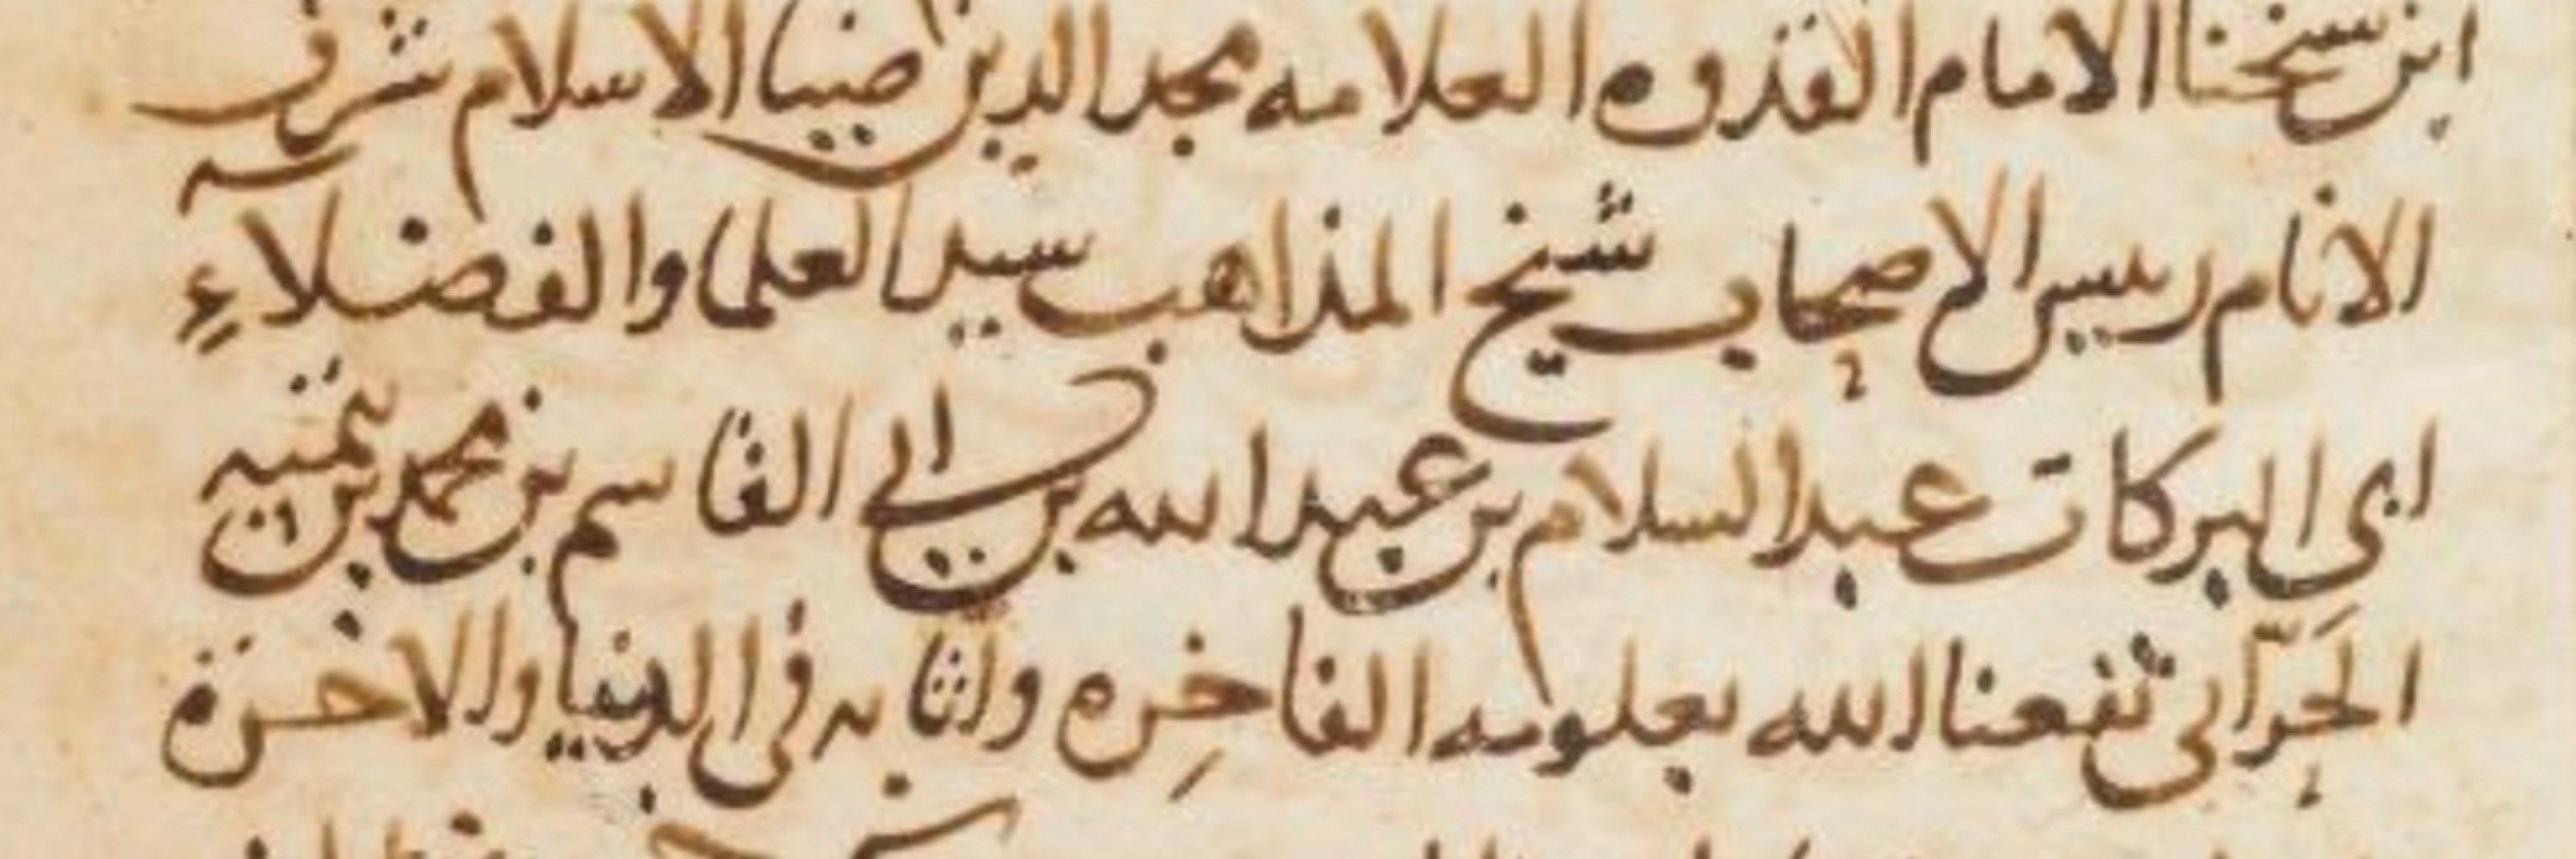 ابن شيخنا الامام القدوه العلامه مجد الدين ضيا الاسلام شرف
الانام رييس الاصحاب شيخ المذاهب سيد العلما والفضلاء
ابي البركات عبد السلام بن عبد الله بن ابي القاسم بن محمد بن تيميه
الحَرّاني نفعنا الله بعلومه الفاخِره واثابه في الدنيا والاخرة